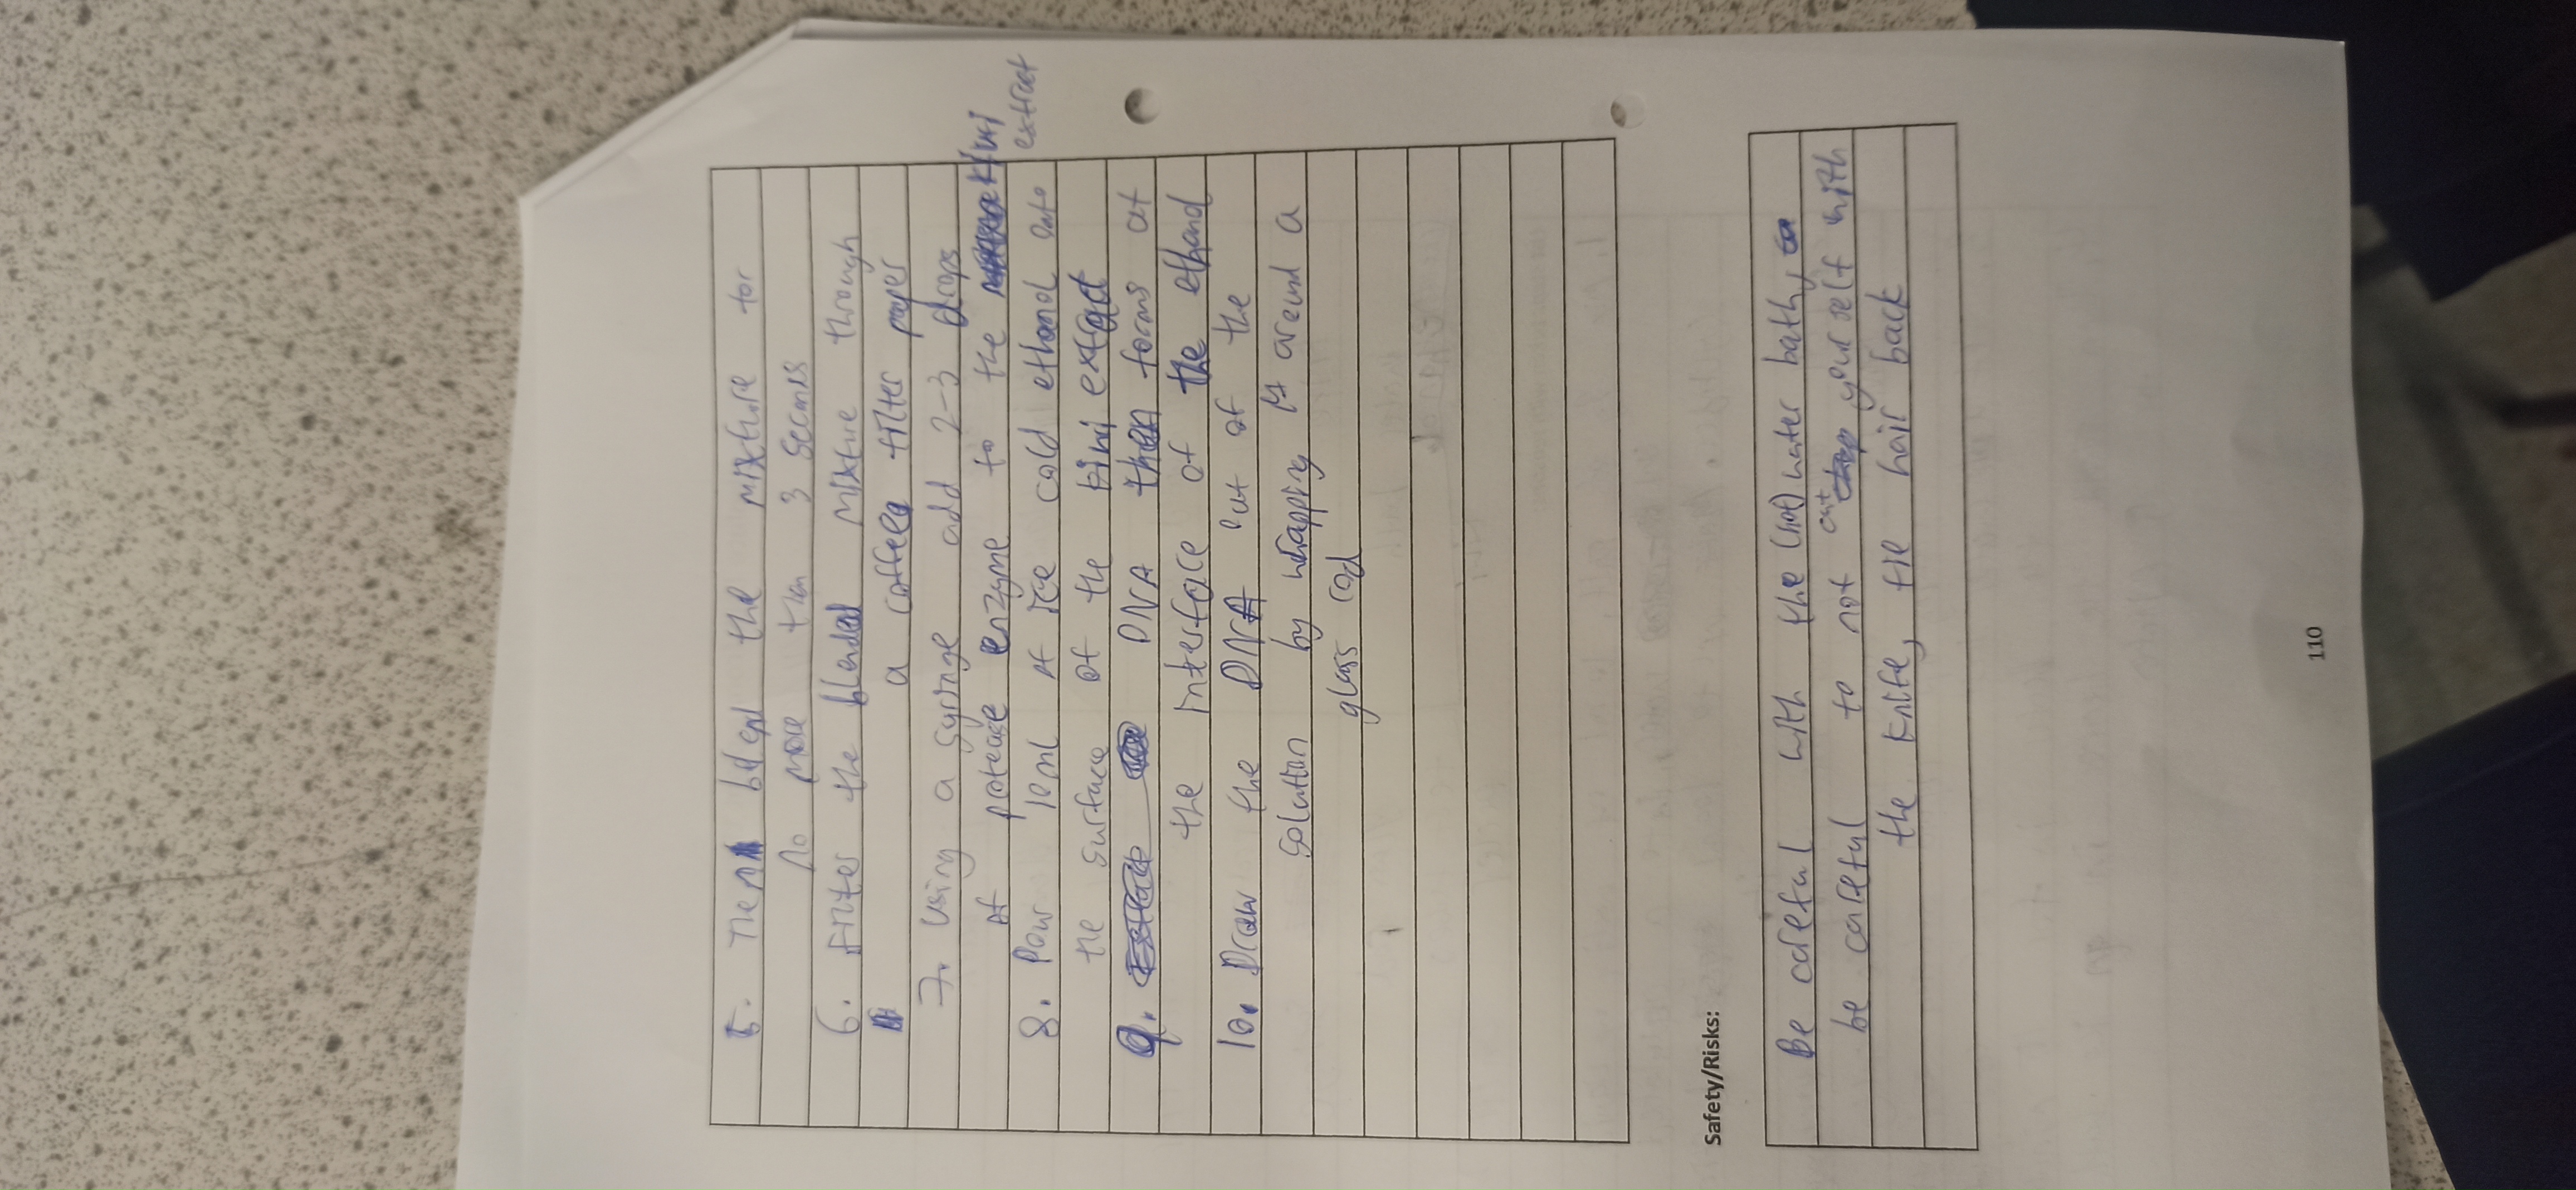 5. Then blend the mixture for
no more than 3 seconds
6. Filter the blended mixture through
a coffee filter paper
7. Using a syringe add 2-3 drops
of protease enzyme to the kiwi
extract
8. Pour 10ml of ice cold ethanol onto
the surface of the kiwi extract
9. DNA then forms at
the interface of the ethanol
10. Draw the DNA out of the
solution by wrapping it around a
glass rod
Safety/Risks:
Be careful with the (hot) water bath,
be careful to not cut yourself with
the knife, tie hair back
110